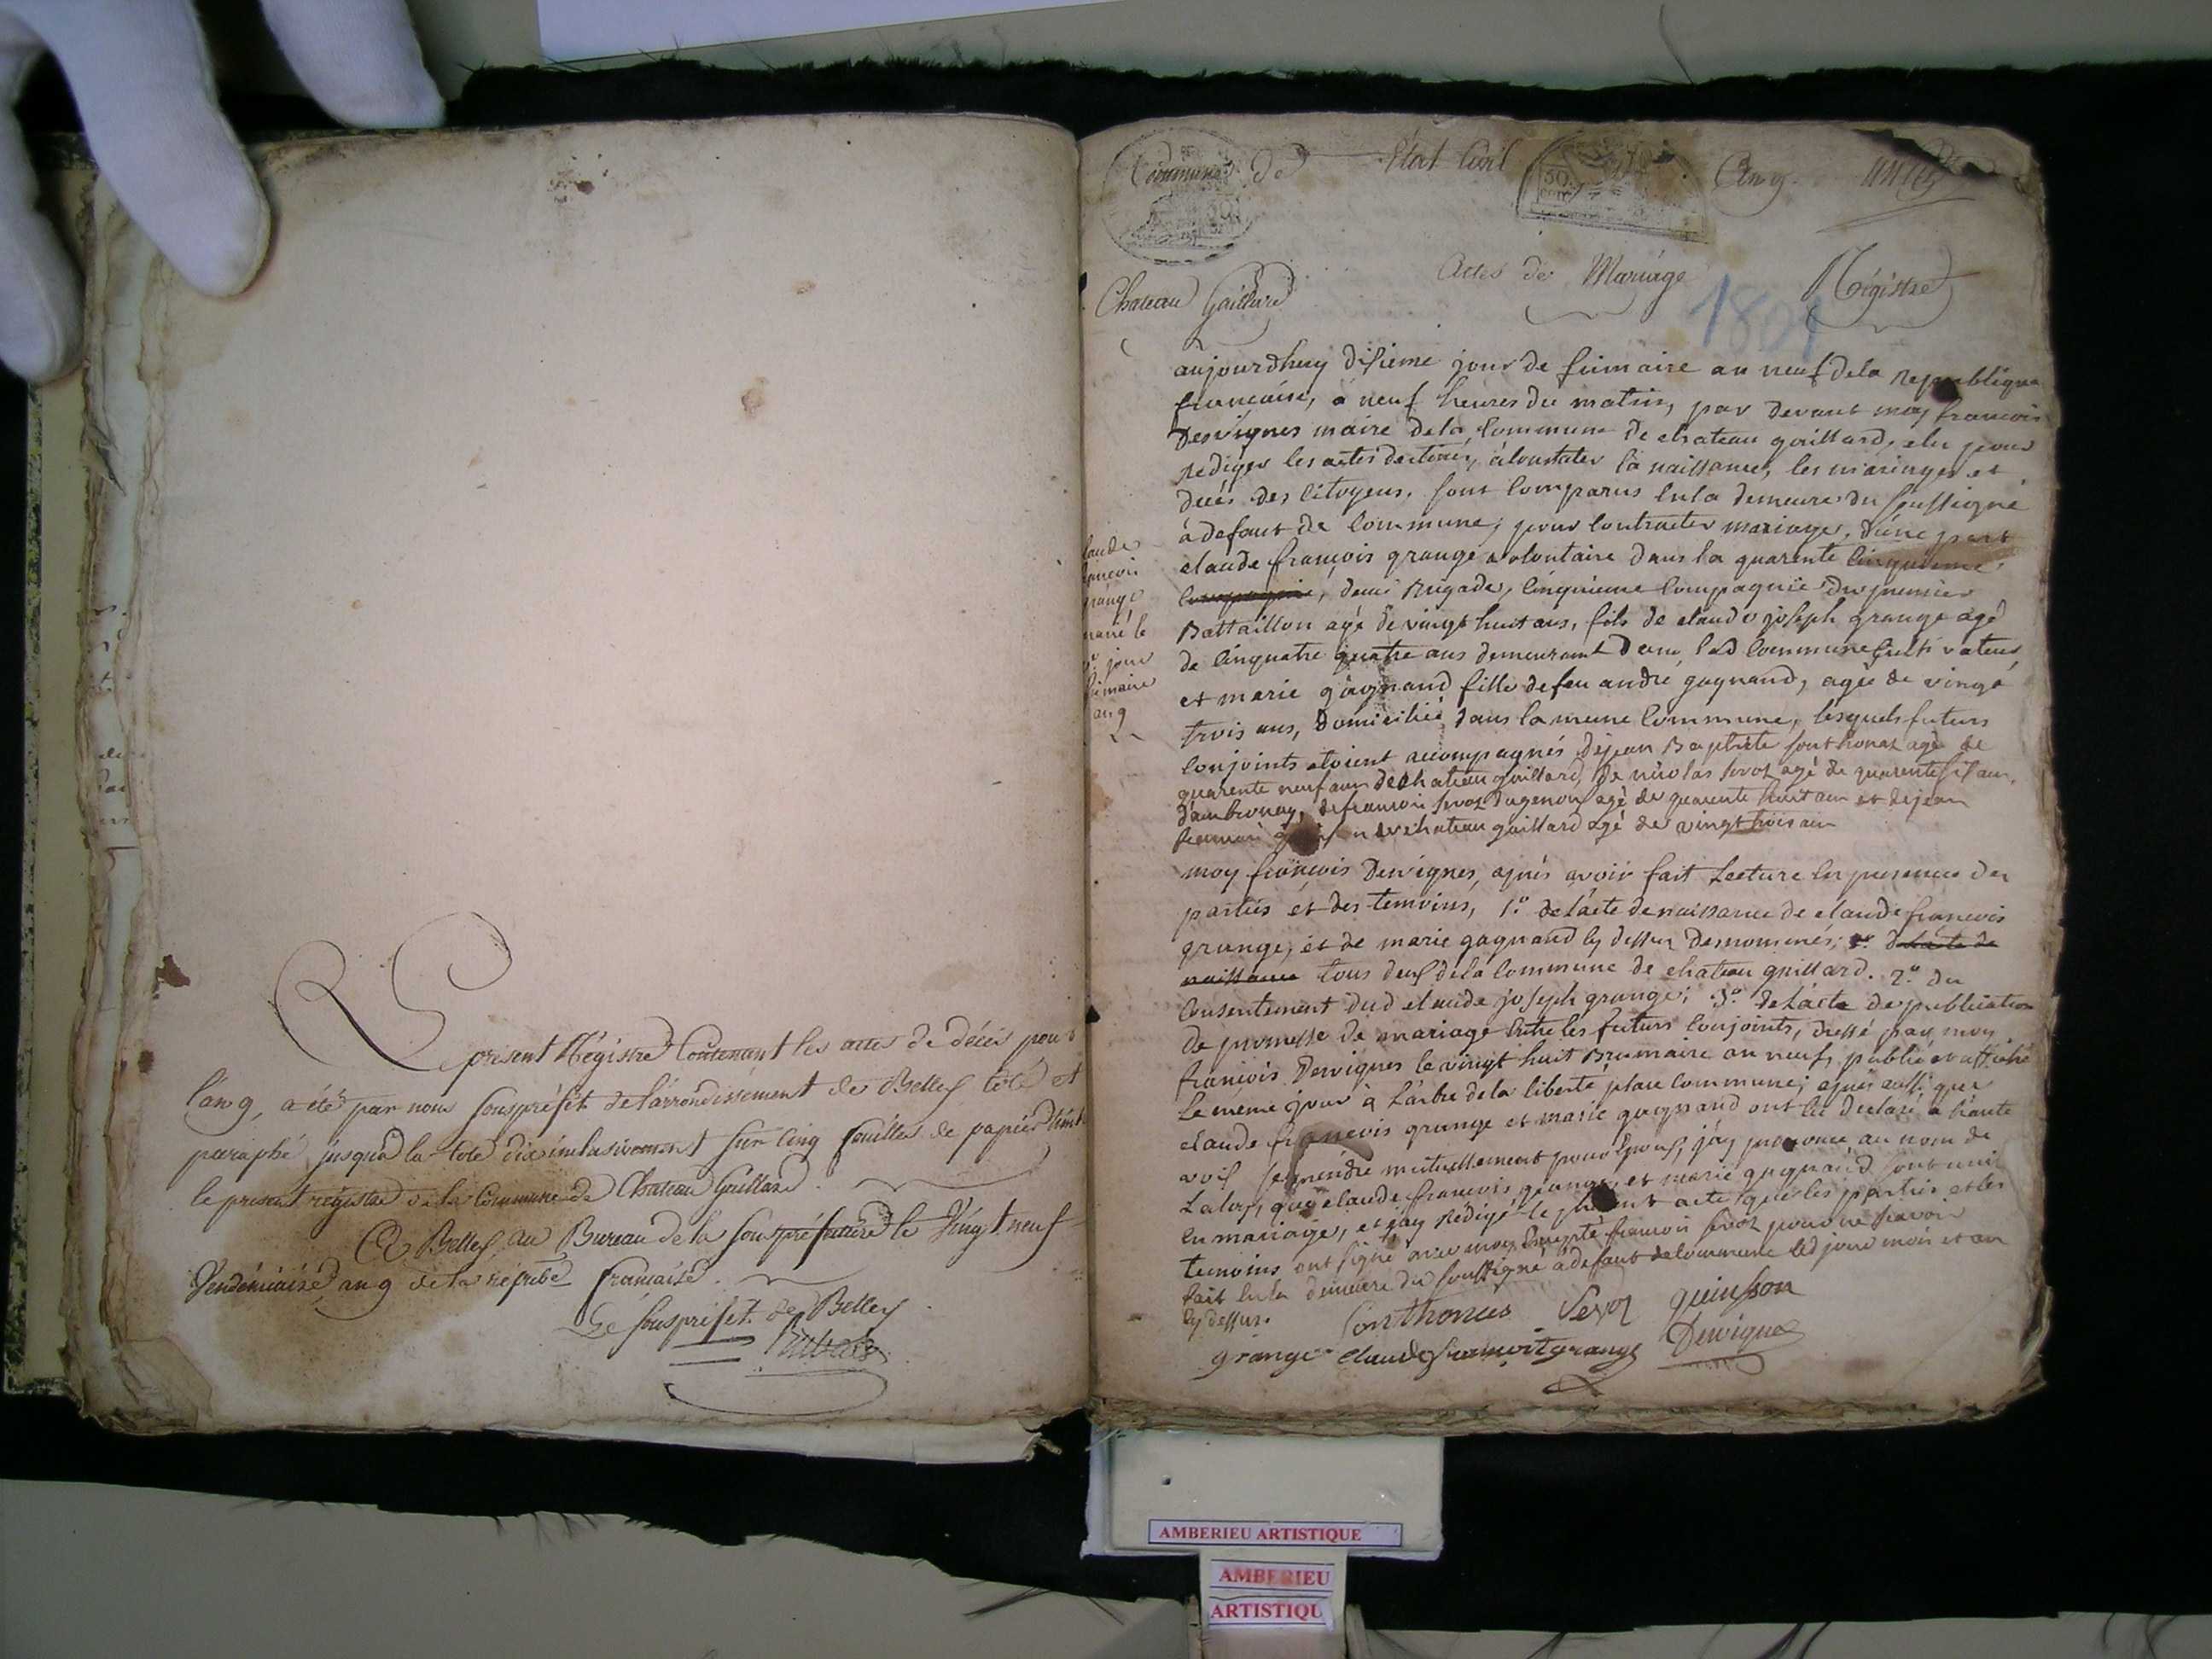 Le present Régistre Contenant les actes de décès pour
l'an 9, a été par nous souspréfet de l'arrondissement de Belley coté et
paraphé jusqu'à la cote dix inclusivement sur cinq feuilles de papier timb
le present registre de la Commune de Chateau Gaillard.
A Belley au Bureau de la souspréfecture le Vingt neuf
Vendémiaire an 9 de la répube française.
Le souspréfet de Belley
Commune de Etat Civil An 9.
Chateau Gaillard Actes de Mariage Régistre
1801
laude
rancois
grange
marié le
jour
frimaire
an 9
aujourdhuy disieme jour de frimaire an neuf dela Republique
francaise, à neuf heures du matin, par devant moy francois
Desvignes maire dela Commune de chateau gaillard, elu pour
Rediger les actes destinés, à Constater la naissance, les mariages et
decés des Citoyens. sont Comparus en la demeure du soussigné
à defaut de Commune, pour Contracter mariage, d'une part
claude françois grange volontaire dans la quarente Cinquieme
Compagnie, demi Brigade, Cinquieme Compagnie du premier
Battaillon agé de vingt huit ans, fils de claude joseph grange agé
de Cinquatre quatre ans demeurant dans lad Commune Cultivateur
et marie gagnand fille de feu andré gagnand, agée de vingt
trois ans, Domiciliée dans la meme Commune, lesquels futurs
Conjoints etoient accompagnés de jean Baptiste fonthonas agé de
quarente neuf ans de chateau gaillard, de nicolas servoz agé de quarente six ans
d'ambronay, de francois servoz agé de quarente huit ans et de jean
de chateau gaillard agé de vingt trois ans
moy françois Desvignes, après avoir fait Lecture en presence des
parties et des temoins, 1.o de l'acte de naissance de claude francois
grange, et de marie gagnand cy dessus denommés; 2.o de l'acte de
naissance tous deux de la Commune de chateau gaillard. 2.o du
Consentement dud claude joseph grange; 3.o de l'acte de publication
de promesse de mariage entre les futurs Conjoints, dressé par moy
françois Desvignes le vingt huit Brumaire an neuf, publié et affiché
le même jour à l'arbre dela liberté place Commune; après aussi que
claude francois grange et marie gagnand ont eu declaré a haute
voix se prendre mutuellement pour Epoux, j'ay prononcé au nom de
La loy, que claude francois grange et marie gagnand sont unis
en mariage, et j'ay Redigé le present acte que les parties et les
temoins ont signé avec moy, Excepté francois servoz pour ne savoir
fait en la demeure du soussigné à defaut de commune led jour mois et an
cy dessus. fonthonas Servoz quinson
grange claude francoit grange Desvignes
AMBERIEU ARTISTIQUE
AMBERIEU
ARTISTIQU